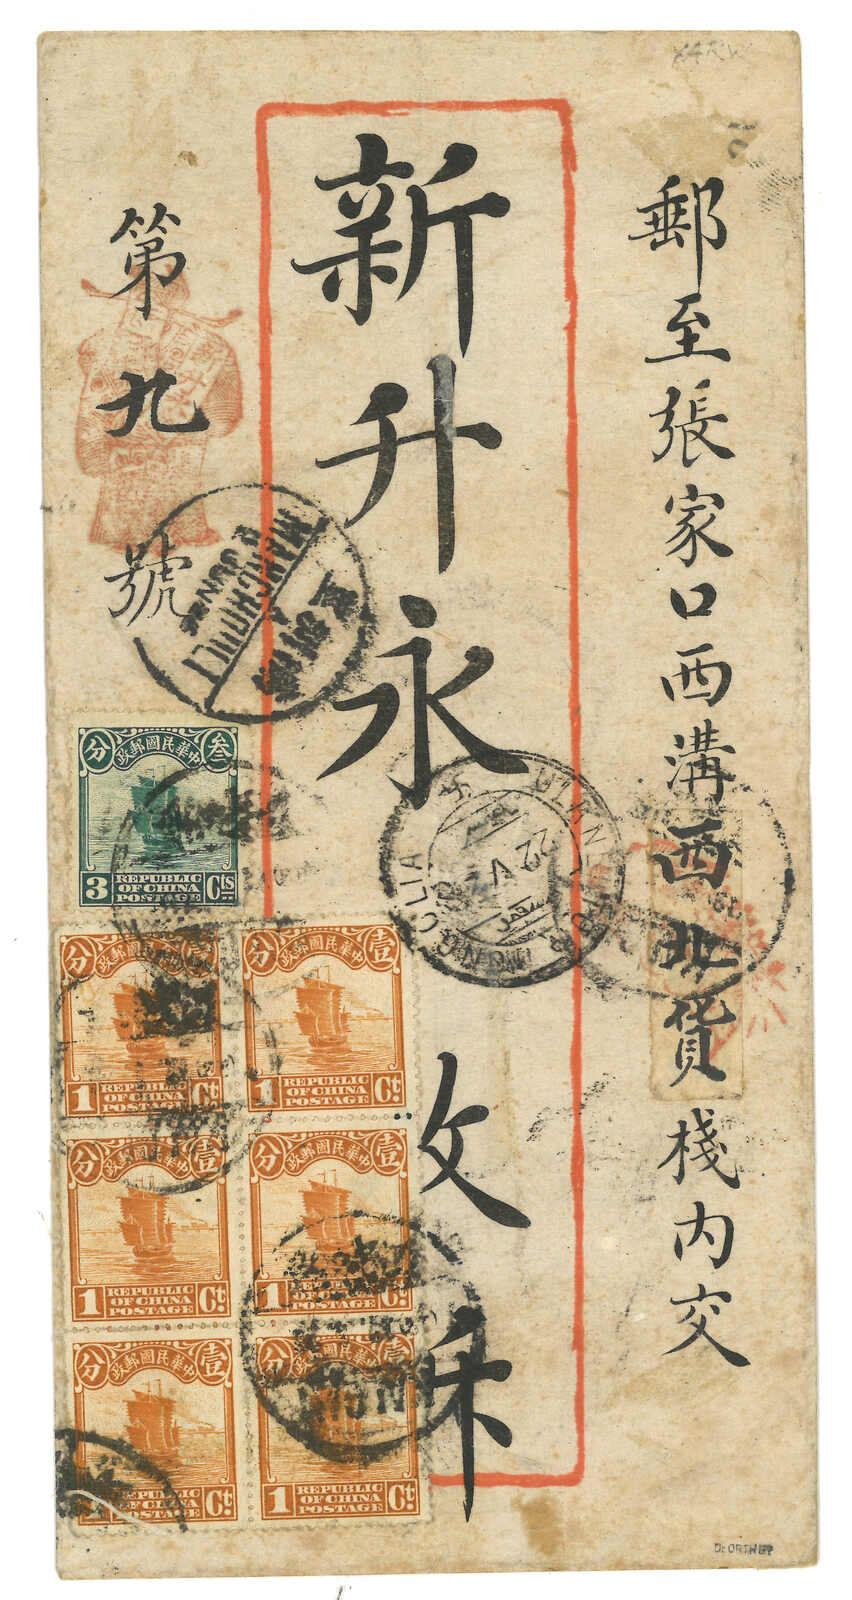 郵至張家口西溝西北貨栈内交
新升永
收
第九號
MANCHOULI
ULAN
22 V
中華民國郵政
叁 分
3 REPUBLIC OF CHINA POSTAGE Cts
中華民國郵政
壹 分
1 REPUBLIC OF CHINA POSTAGE Ct
中華民國郵政
壹 分
1 REPUBLIC OF CHINA POSTAGE Ct
中華民國郵政
壹 分
1 REPUBLIC OF CHINA POSTAGE Ct
中華民國郵政
壹 分
1 REPUBLIC OF CHINA POSTAGE Ct
中華民國郵政
壹 分
1 REPUBLIC OF CHINA POSTAGE Ct
中華民國郵政
壹 分
1 REPUBLIC OF CHINA POSTAGE Ct